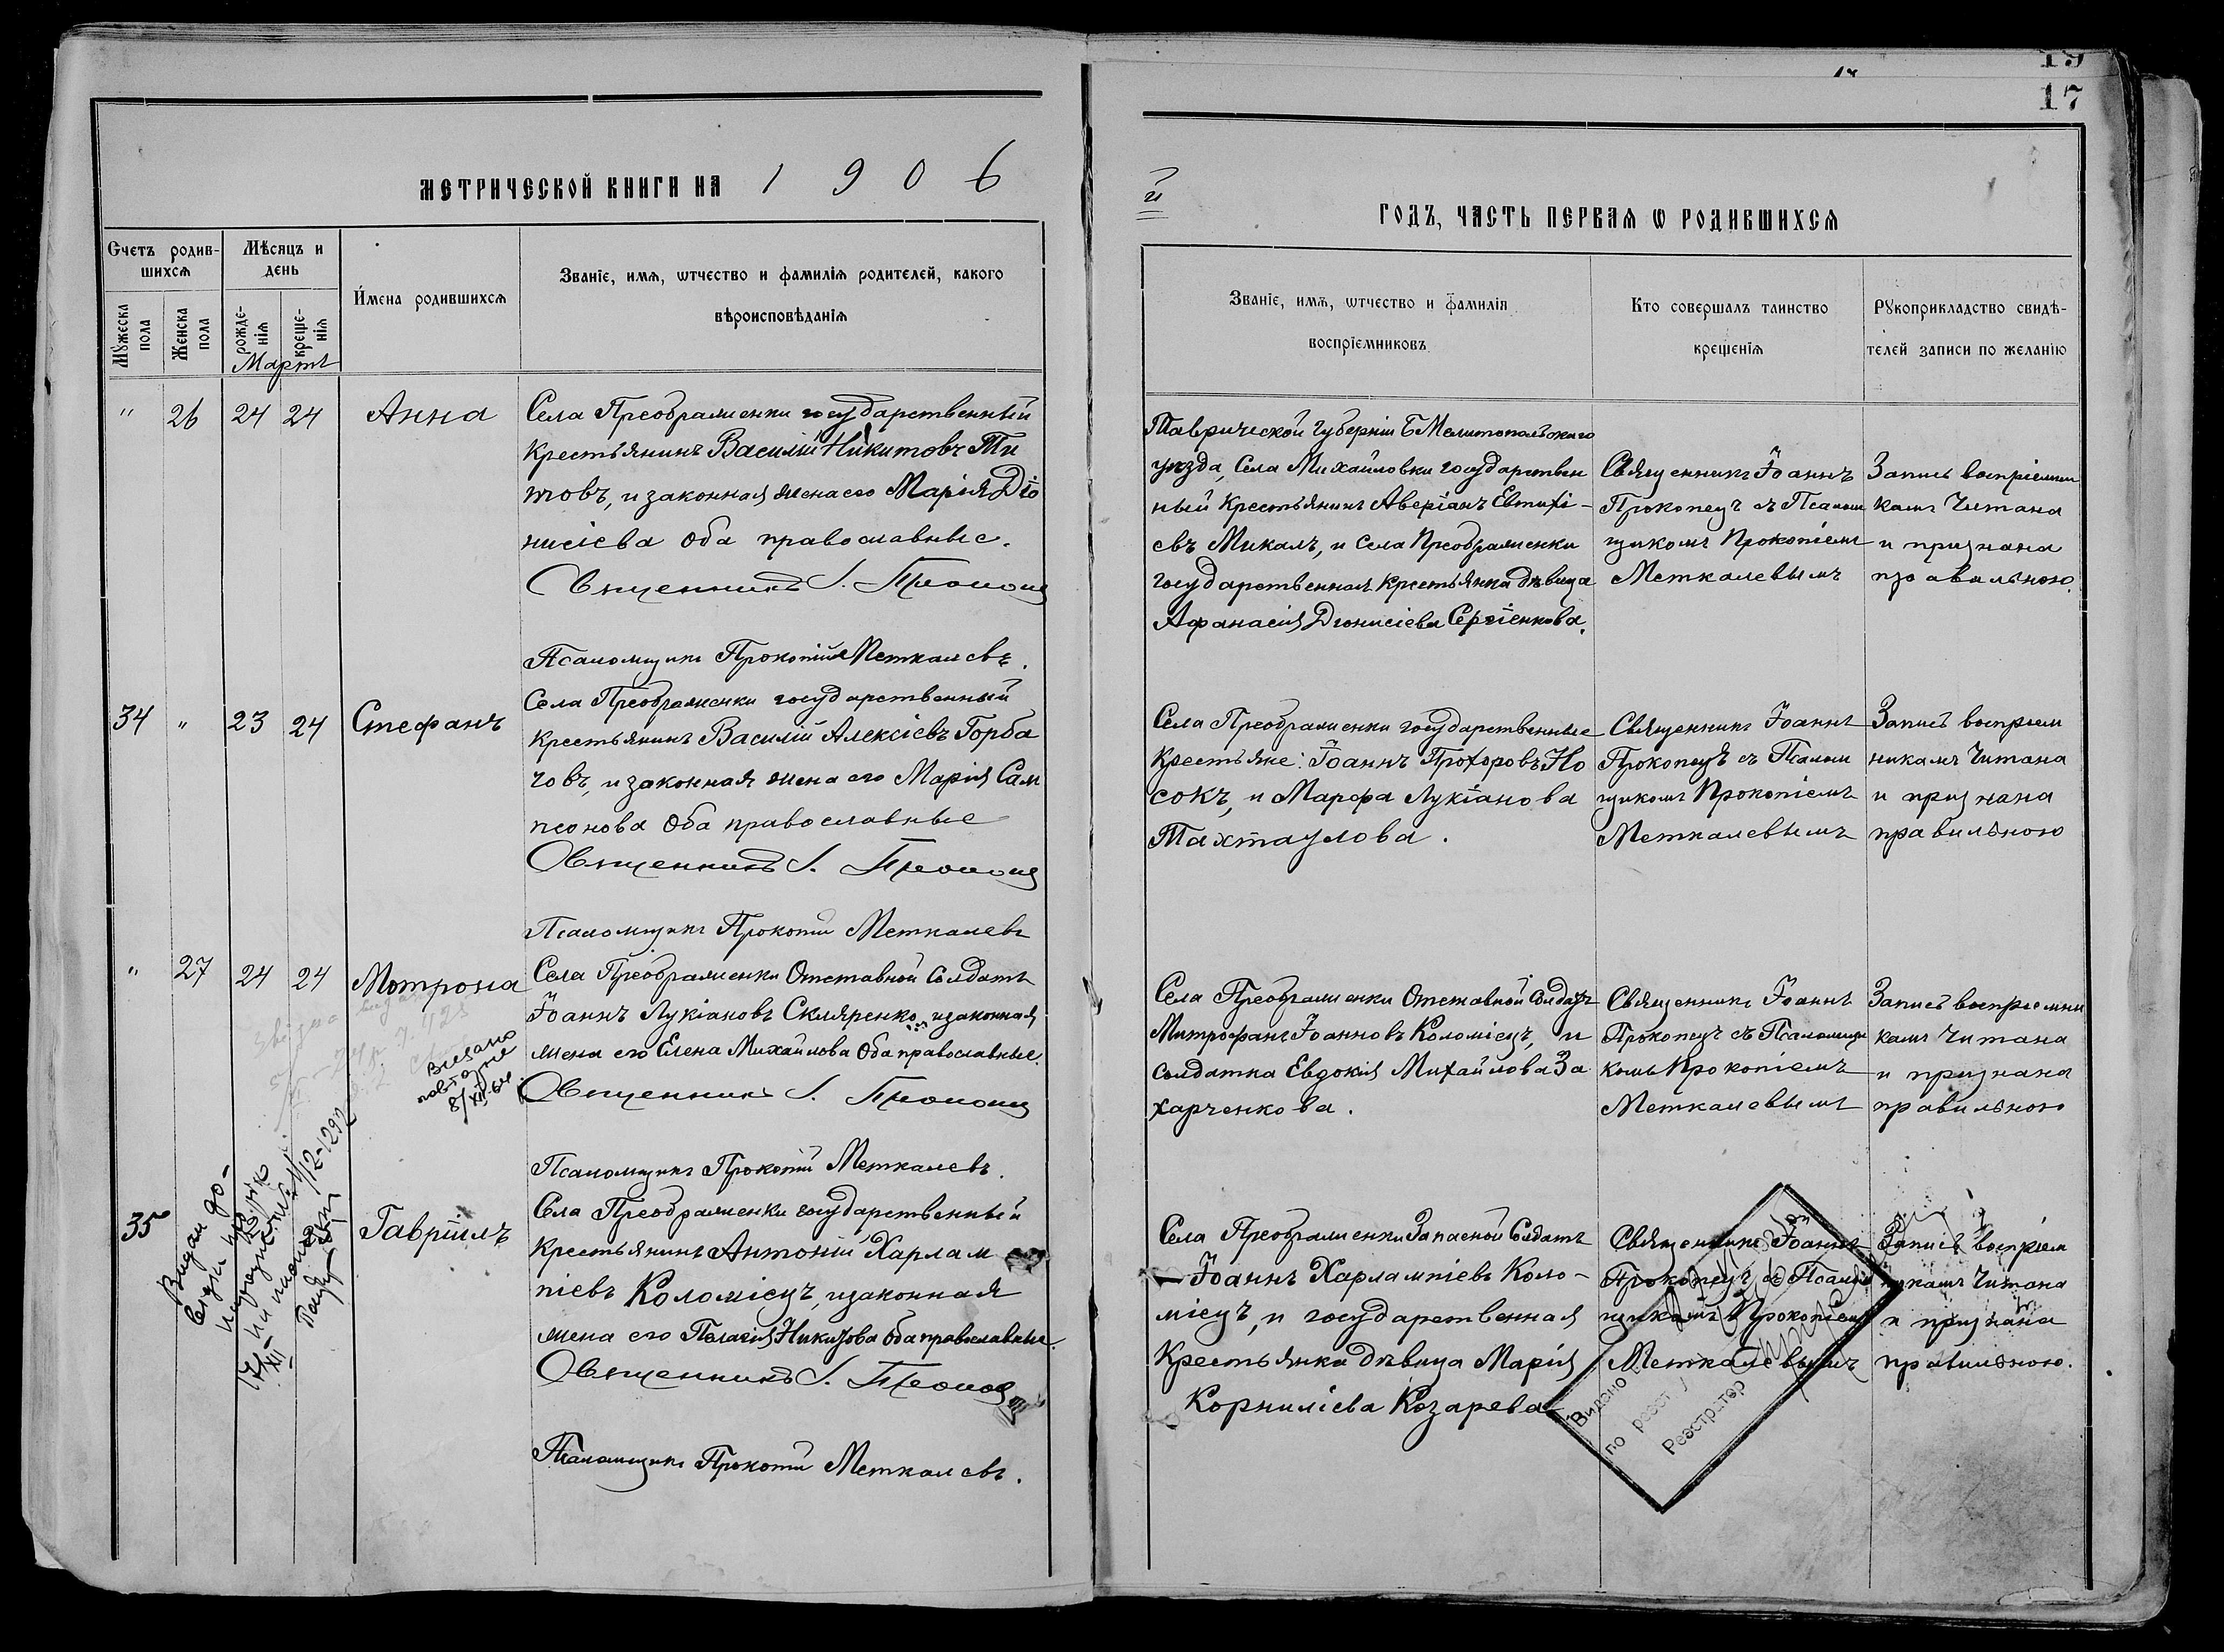 19
17
МЕТРИЧЕСКОЙ КНИГИ НА 1906
й ГОДЪ, ЧАСТЬ ПЕРВАЯ Ѡ РОДИВШИХСЯ
Счетъ родив-
шихся
Мѣсяцъ и
день
Имена родившихся
Званіе, имя, ѡтчество и фамилія родителей, какого
вѣроисповѣданія
Мужеска
пола
Женска
пола
рожде-
нія
креще-
нія
Мартъ
Званіе, имя, ѡтчество и фамилія
воспріемниковъ
Кто совершалъ таинство
крещенія
Рукоприкладство свидѣ-
телей записи по желанію
" 26 24 24 Анна
Села Преображенки государственный
крестьянинъ Василій Никитовъ Ти
товъ, и законная жена его Марія Діо
нисіева оба православные.
Священникъ І. Прокопецъ
Псаломщикъ Прокопій Меткалевъ.
Таврической Губерніи Мелитопольскаго
уѣзда, Села Михайловки государствен
ный крестьянинъ Аверіанъ Евтихі-
евъ Микалъ, и Села Преображенки
государственная крестьянка дѣвица
Афанасія Діонисіева Сергіенкова.
Священникъ Іоаннъ
Прокопецъ съ Псалом
щикомъ Прокопіемъ
Меткалевымъ
Запись воспріемни
камъ читана
и признана
правильною.
34 " 23 24 Стефанъ
Села Преображенки государственный
крестьянинъ Василій Алексіевъ Горба
човъ, и законная жена его Марія Сам
псонова оба православные
Священникъ І. Прокопецъ
Псаломщикъ Прокопій Меткалевъ
Села Преображенки государственные
Крестьяне: Іоаннъ Прохоровъ Но
сокъ, и Марфа Лукіанова
Тахтаулова.
Священникъ Іоаннъ
Прокопецъ съ Псалом
щикомъ Прокопіемъ
Меткалевымъ
Запись воспріем
никамъ читана
и признана
правильною
" 27 24 24 Мотрона
Села Преображенки Отставной Солдатъ
Іоаннъ Лукіановъ Скляренко, и законная
жена его Елена Михайлова оба православные.
Священникъ І. Прокопецъ
Псаломщикъ Прокопій Меткалевъ.
Села Преображенки Отставной Солдатъ
Митрофанъ Іоанновъ Коломіецъ, и
солдатка Евдокія Михайлова За
харченкова.
Священникъ Іоаннъ
Прокопецъ съ Псаломщи
комъ Прокопіемъ
Меткалевымъ
Запись воспріемни
камъ читана
и признана
правильною
Видано
повторне
8/XII-64
35 Гавріилъ
Села Преображенки государственный
крестьянинъ Антоній Харлам
піевъ Коломіецъ, и законная
жена его Пелагія Никитова оба православные.
Священникъ І. Прокопецъ
Псаломщикъ Прокопій Меткалевъ.
Села Преображенки Запасной Солдатъ
Іоаннъ Харлампіевъ Коло-
міецъ, и государственная
Крестьянка дѣвица Марія
Корниліева Козарева
Священникъ Іоаннъ
Прокопецъ съ Псалом
щикомъ Прокопіемъ
Меткалевымъ
Запись воспріем
никамъ читана
и признана
правильною.
Видано
по реєст
Реєстратор